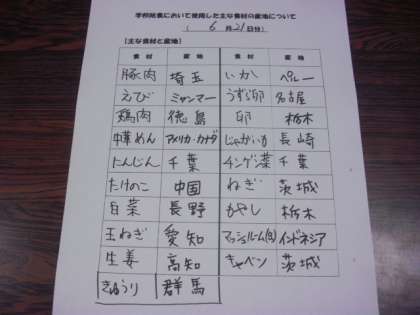 学校給食において使用した主な食材の産地について
( 6月21日分)
[主な食材と産地]
食材 産地 食材 産地
豚肉 埼玉 いか ペルー
えび ミャンマー うずら卵 名古屋
鶏肉 徳島 卵 栃木
中華めん アメリカ・カナダ じゃがいも 長崎
にんじん 千葉 チンゲン菜 千葉
たけのこ 中国 ねぎ 茨城
白菜 長野 もやし 栃木
玉ねぎ 愛知 マッシュルーム(缶) インドネシア
生姜 高知 キャベツ 茨城
きゅうり 群馬